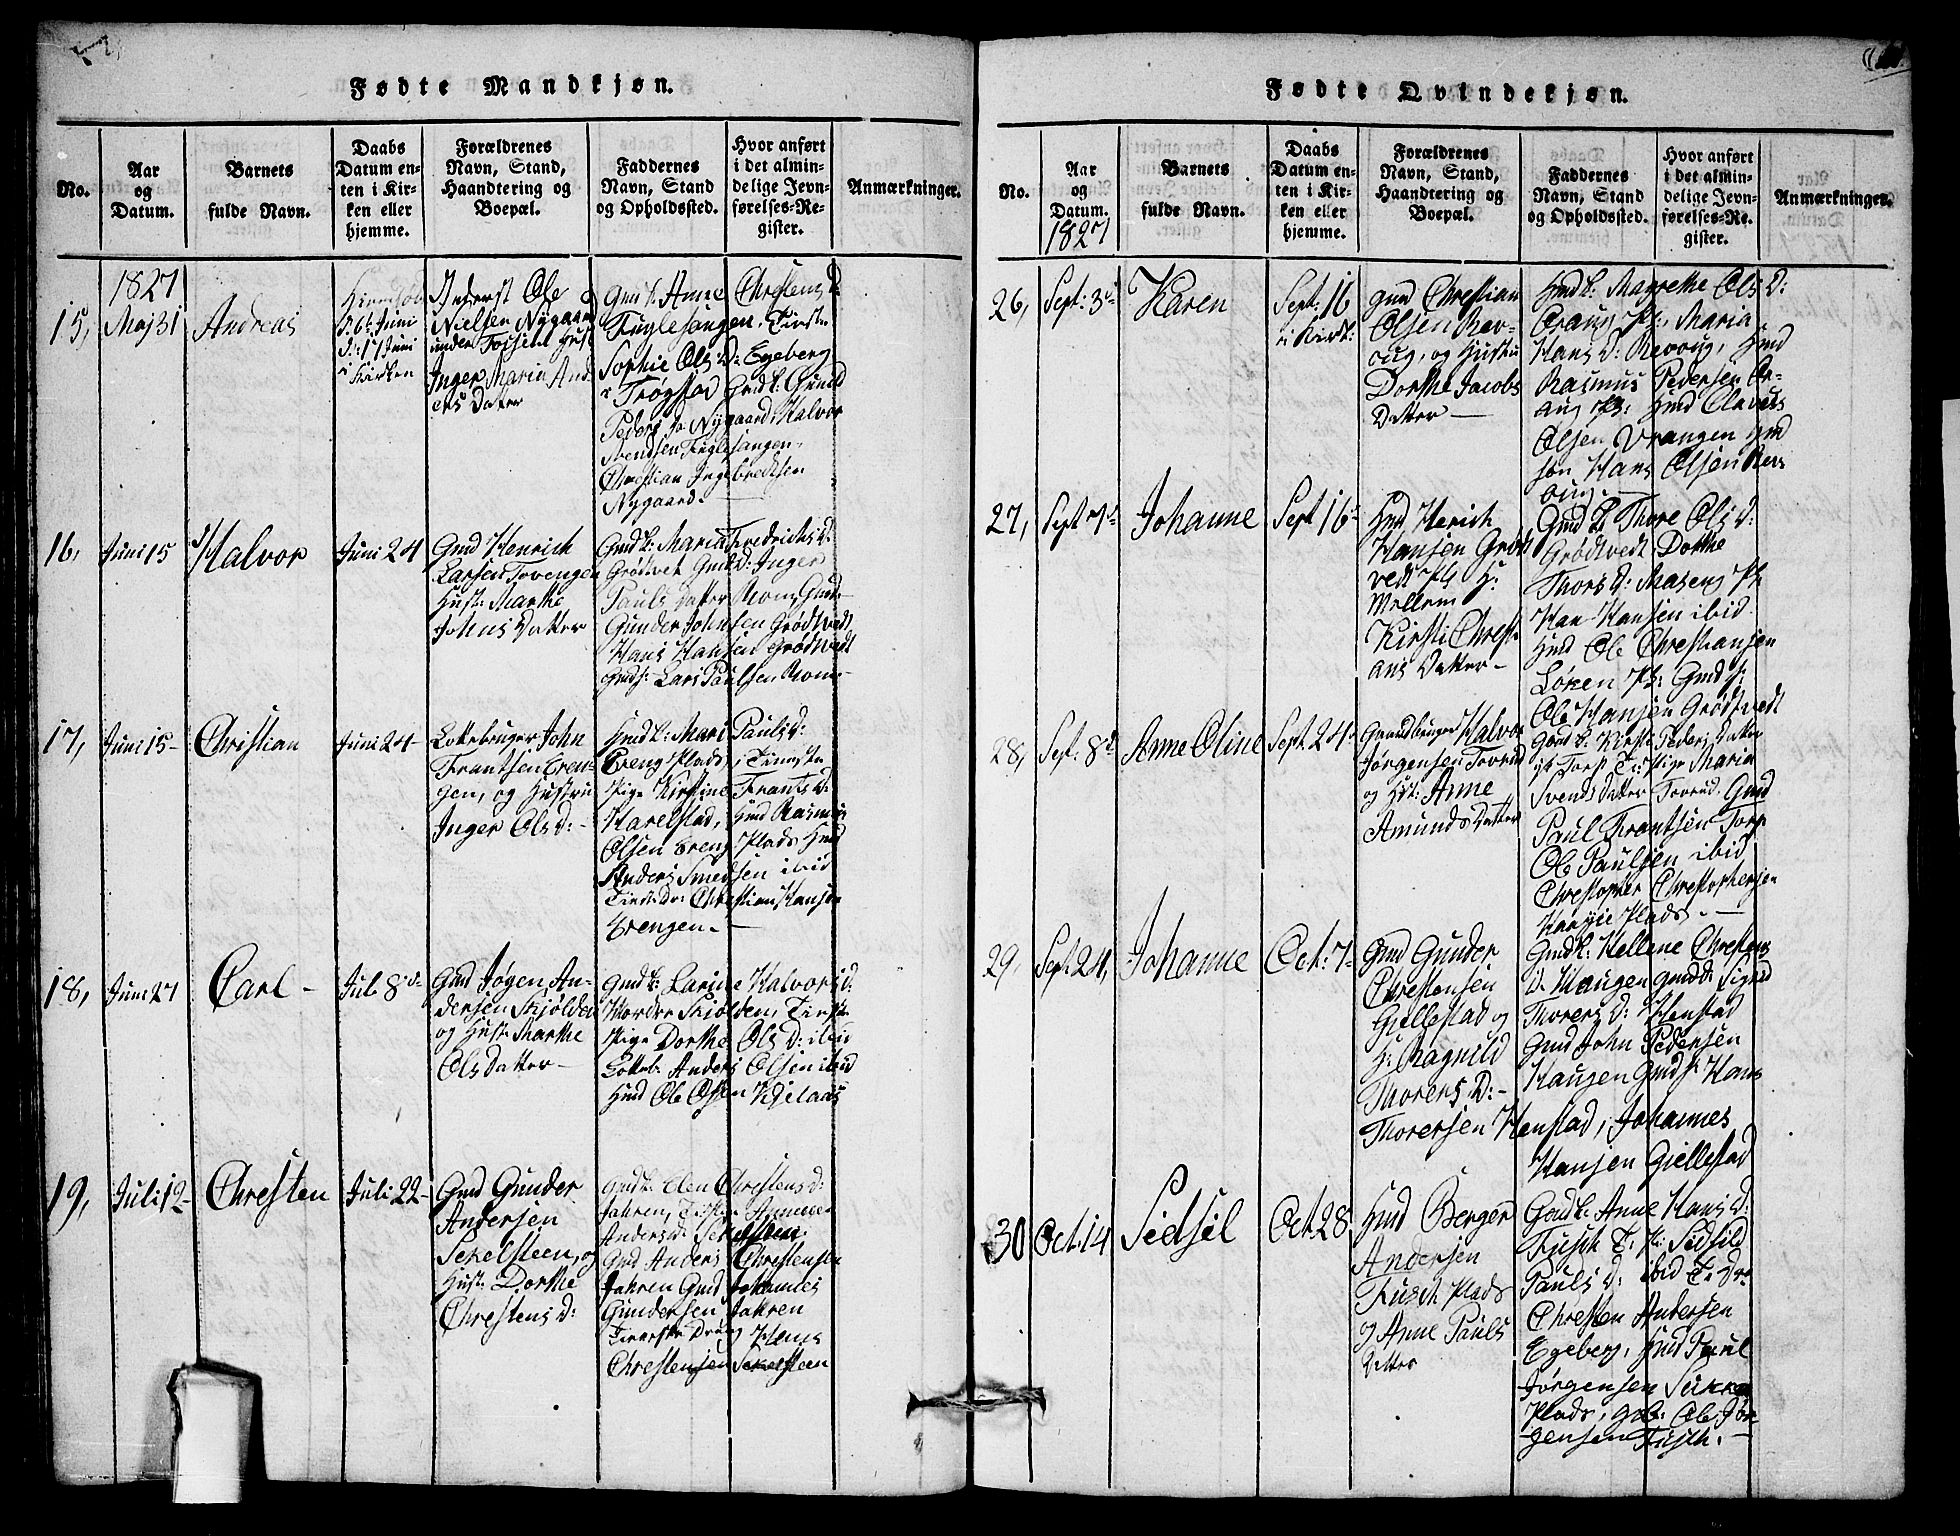 Fødte Mandkjøn.
No.
Aar
og
Datum.
Barnets
fulde Navn.
Daabs
Datum en-
ten i Kir-
ken eller
hjemme.
Forældrenes
Navn, Stand,
Haandtering og
Boepæl.
Faddernes
Navn, Stand
og Opholdssted.
Hvor anført
i det almin-
delige Jevn-
førelses-Re-
gister.
Anmærkninger.
1827
15,
Maj 31
Andreas
6te Juni
D: 17 Juni
i Kirken
Inderst Ole
Nielsen Nygaard
under Hust
Inger Maria And
ers Datter
Gmd k: Anne Chrestens D:
Fuglesangen, Tienste
Sophie Ols D: Egeberg
i Trøgstad Gmd k: Gunild
Peders D Nygaard, Halvor
Svendsen Fuglesangen.
Christian Ingebredtsen
Nygaard.
16,
Juni 15
Halvor
Juni 24
Gmd Henrich
Larsen Tovengen
Hust: Marthe
Johns Datter
Gmd k: Maria Fredrichs D:
Grødtvet Gmd D: Inger
Pauls Datter Moen, Gmd
Gunder Johnsen Grødtvedt
Hans Hansen Grødtvedt
Gmd s: Lars Paulsen Moen
17,
Juni 15-
Christian
Juni 24-
Lottebruger John
Frantsen Eren-
gen, og Hustru
Inger Ols D: -
Hmd k: Mari Pauls D:
Ereng Plads, Tieneste
Pige Kirstine Frants D:
Harelstad, Hmd Rasmus
Olsen Ereng Plads Hmd
Anders Smedsen ibid
Tienste Dr: Christian Hansen
Erengen. -
18,
Juni 27
Carl -
Juli 8de
Gmd Jøgen An-
dersen Skjolden
og Hust: Marthe
Ols Datter -
Gmd k: Larine Halvors D:
Nordre Skiolden, Tienste
Pige Dorthe Ols D: ibid
Lotteb: Anders Olsen ibid
Hmd Ole Olsen Kjelaas
19,
Juli 12-
Chresten
Juli 22-
Gmd Gunder
Andersen
Sekelsteen, og
Hust: Dorthe
Chrestens D:
Gmd k: Elen Chrestens D:
Jahren, Annie
Anders D: Sekelsteen
Gmd Anders Chrestensen
Jahren Gmd Johannes
Gundersen Jahren
Tieneste Dreng Hans
Chrestensen Sekelsteen
Fødte Qvindekjøn.
No.
Aar
og
Datum.
1827
Barnets
fulde Navn.
Daabs
Datum en-
ten i Kir-
ken eller
hjemme.
Forældrenes
Navn, Stand,
Haandtering og
Boepæl.
Faddernes
Navn, Stand
og Opholdssted.
Hvor anført
i det almin-
delige Jevn-
førelses-Re-
gister.
Anmærkninger.
26,
Sept: 3de
Karen
Sept: 16
i Kirk:
Gmd Chrestian
Olsen Rev-
oug, og Hustru
Dorthe Jacobs
Datter -
Hmd k: Magrethe Ols D:
Oraug Pl: Maria
Hans D: Revoug, Hmd
Rasmus Pedersen Or-
aug Pl: Hmd Olaves
Olsen Vrangen Gmd
søn Hans Olsen Rev
oug. -
27,
Sept 7de
Johanne
Sept 16de
Hmd Herich
Hansen Grødt
vedt Pl H:
Mellem H:
Kirsti Christi
ans Datter -
Gmd k: Thore Ols D:
Grødtvedt Dorthe
Thors D: Maseng Pl
Han Hansen ibid
Hmd Ole Chrestiansen
Løken Pl: Gmd s:
Ole Hansen Grødtvedt
28,
Sept: 8de
Anne Oline
Sept 24de
Gaardbruger Halvor
Jørgensen Toverud
og Hst: Anne
Amunds Datter
Gmd k: Kirsti Peders Datter
Torp Tieniste Pige Maria
Svends Datter Toverud, Gmd
Paul Frantsen Torp
Ole Paulsen ibid
Christopher Christophersen
Plads. -
29,
Sept 24,
Johanne
Oct: 7-
Gmd Gunder
Chrestensen
Giellestad og
H: Ragnild
Thorers D: -
Gmd k: Hellene Chrestens
D. Haugen Gmd D: Signed
Thorers D: Henstad
Gmd John Pedersen
Haugen Gmd s: Hans
Thorersen Henstad, Johannes
Hansen Giellestad
30
Oct: 14
Sidsil
Oct 28
Hmd Berger
Andersen
Fusch Plads
og Anne Pauls
Datter
Gmd k: Anne Hans D:
Fusch T: P: Sidsild
Pauls D: ibid T: Dr:
Chresten Andersen
Egeberg, Hmd Paul
Jørgensen
Plads, Ole Jør-
gensen Fusch. -